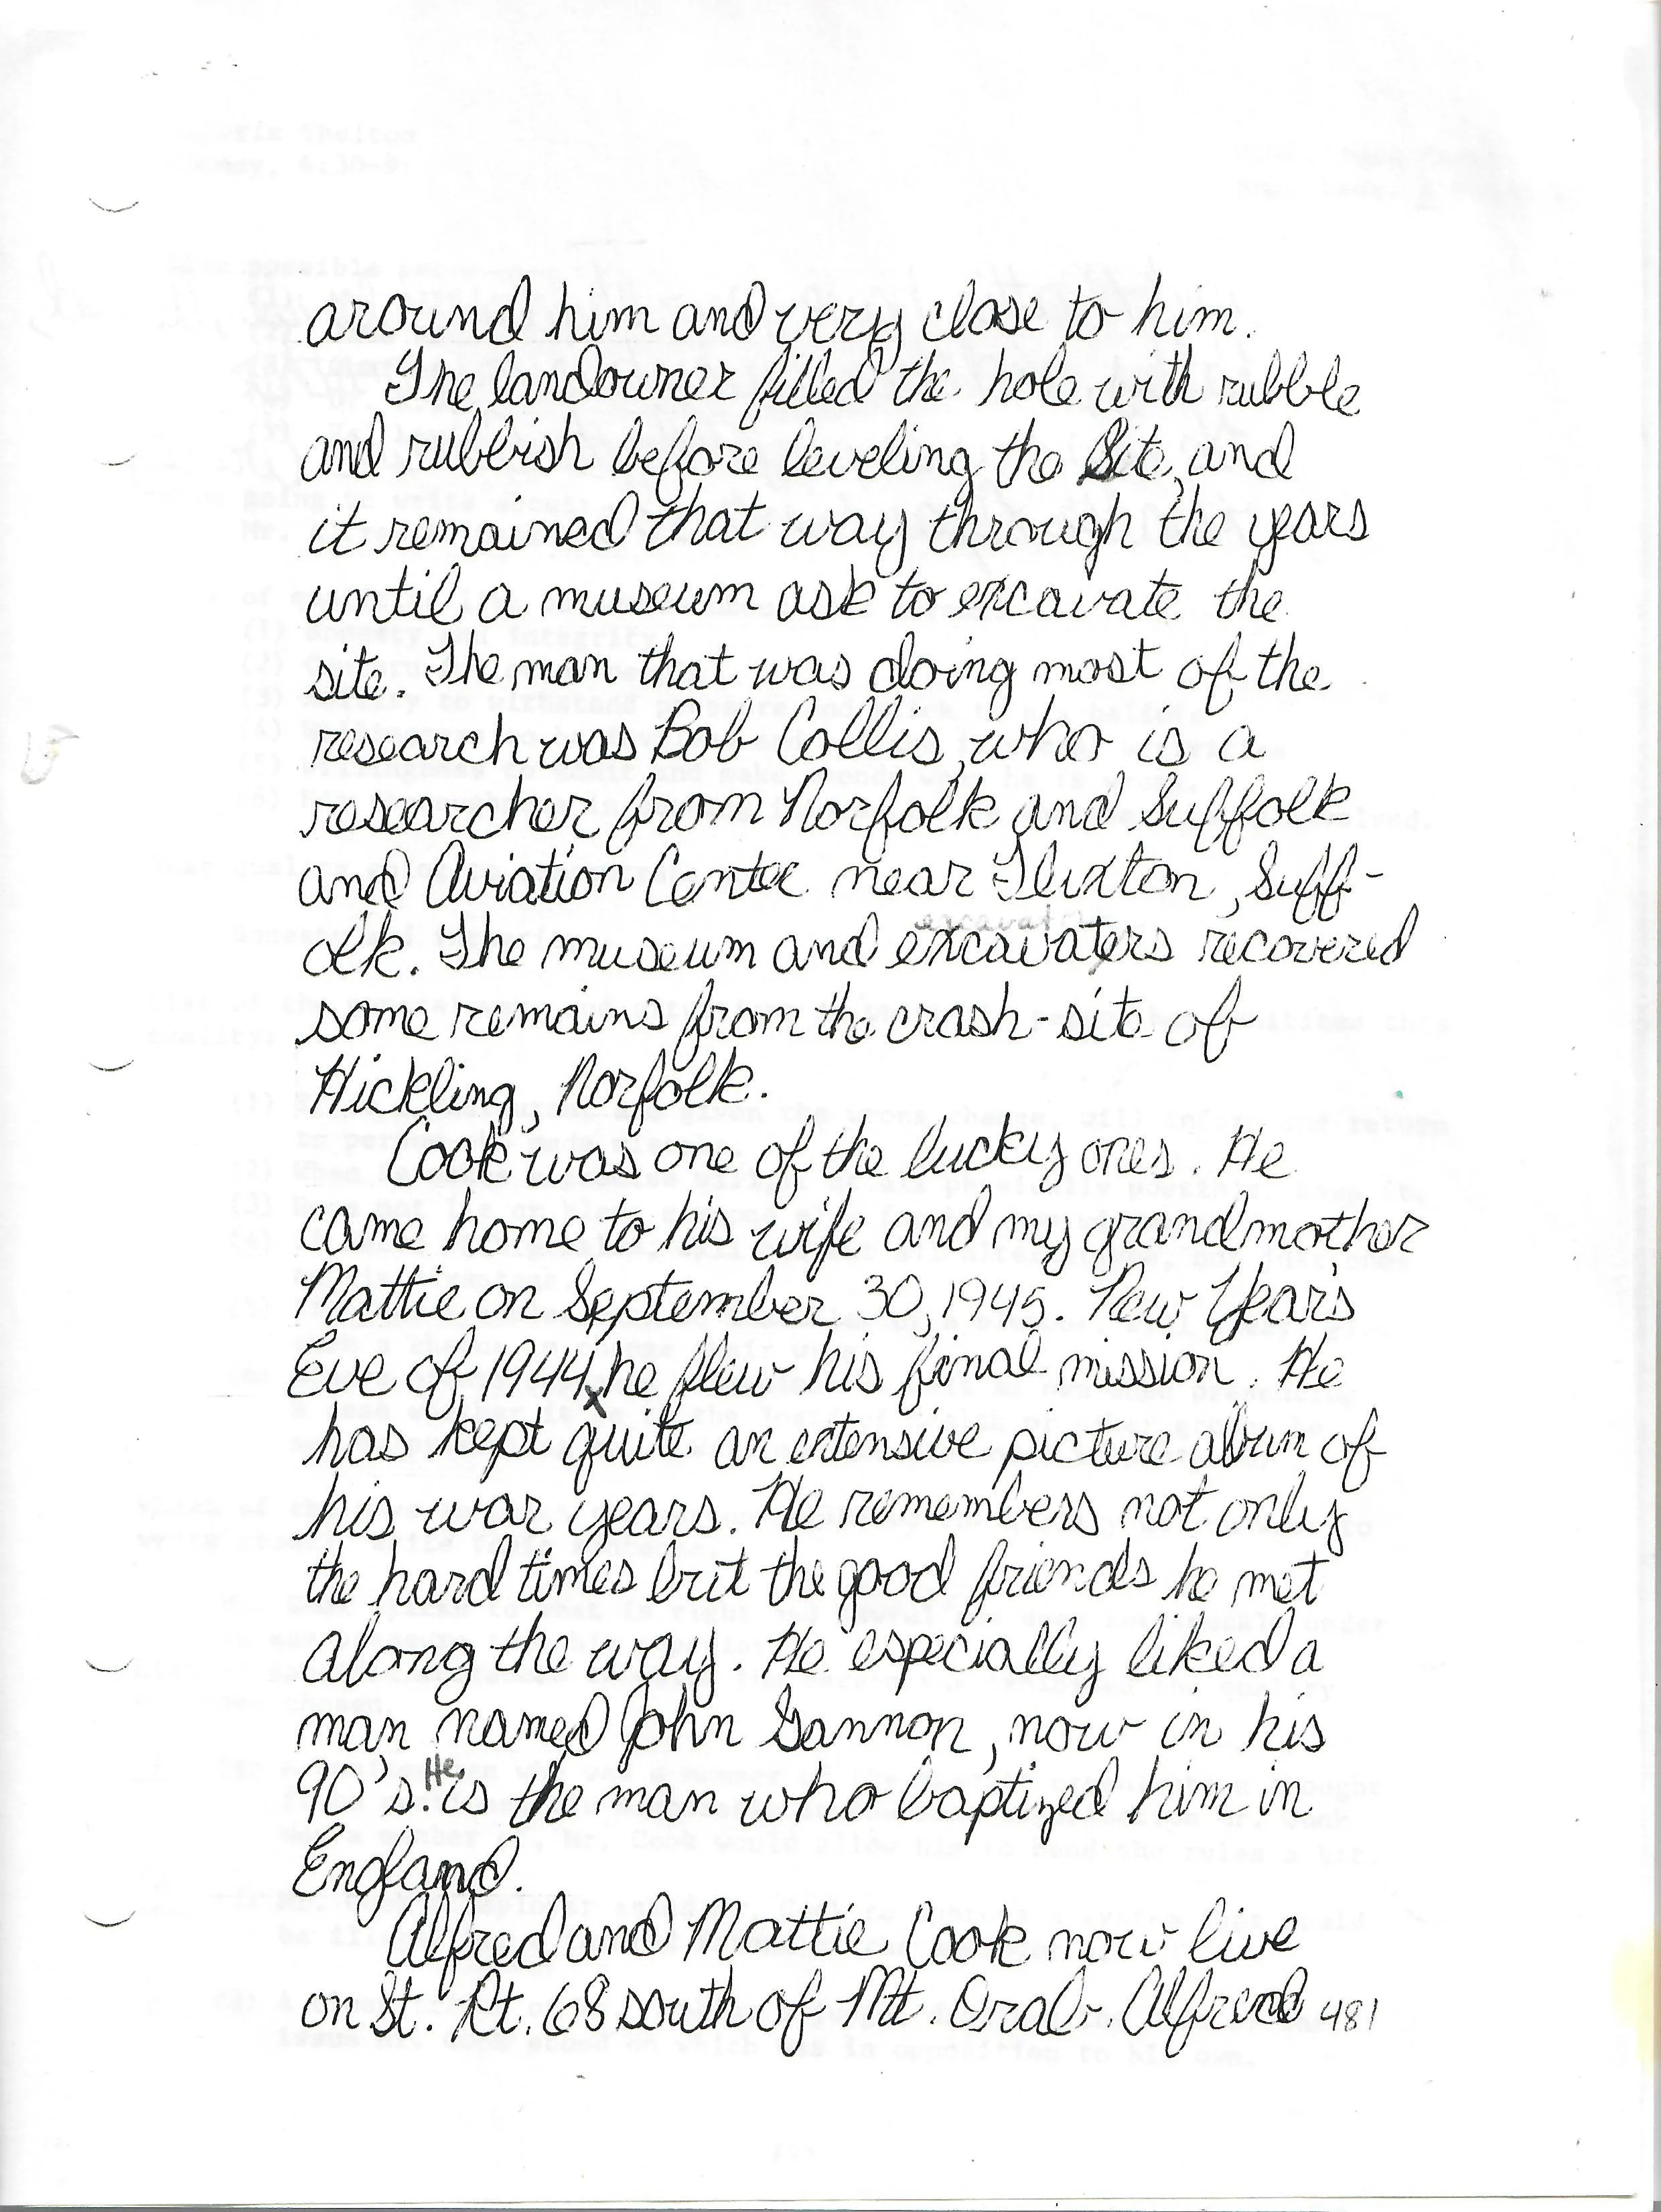 around him and very close to him.
The landowner filled the hole with rubble
and rubbish before leveling the Site, and
it remained that way through the years
until a museum ask to excavate the
site. The man that was doing most of the
research was Bob Collis, who is a
researcher from Norfolk and Suffolk
and Aviation Center near Fluxton, Suff-
olk. The museum and excavaters recovered
some remains from the crash-site of
Hickling, Norfolk.
Cook was one of the lucky ones. He
came home to his wife and my grandmother
Mattie on September 30, 1945. New Year's
Eve of 1944, he flew his final mission. He
has kept quite an extensive picture album of
his war years. He remembers not only
the hard times but the good friends he met
along the way. He especially liked a
man named John Gannon, now in his
90's. He is the man who baptized him in
England.
Alfred and Mattie Cook now live
on St. Rt. 68 south of Mt. Orab. Alfred 481